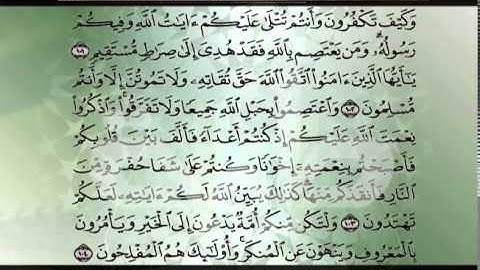 وَكَيْفَ تَكْفُرُونَ وَأَنتُمْ تُتْلَىٰ عَلَيْكُمْ ءَايَٰتُ ٱللَّهِ وَفِيكُمْ
رَسُولُهُۥ وَمَن يَعْتَصِم بِٱللَّهِ فَقَدْ هُدِىَ إِلَىٰ صِرَٰطٍ مُّسْتَقِيمٍ ١٠١
يَٰٓأَيُّهَا ٱلَّذِينَ ءَامَنُوا۟ ٱتَّقُوا۟ ٱللَّهَ حَقَّ تُقَاتِهِۦ وَلَا تَمُوتُنَّ إِلَّا وَأَنتُم
مُّسْلِمُونَ ١٠٢ وَٱعْتَصِمُوا۟ بِحَبْلِ ٱللَّهِ جَمِيعًا وَلَا تَفَرَّقُوا۟ وَٱذْكُرُوا۟
نِعْمَتَ ٱللَّهِ عَلَيْكُمْ إِذْ كُنتُمْ أَعْدَآءً فَأَلَّفَ بَيْنَ قُلُوبِكُمْ
فَأَصْبَحْتُم بِنِعْمَتِهِۦٓ إِخْوَٰنًا وَكُنتُمْ عَلَىٰ شَفَا حُفْرَةٍ مِّنَ
ٱلنَّارِ فَأَنقَذَكُم مِّنْهَا كَذَٰلِكَ يُبَيِّنُ ٱللَّهُ لَكُمْ ءَايَٰتِهِۦ لَعَلَّكُمْ
تَهْتَدُونَ ١٠٣ وَلْتَكُن مِّنكُمْ أُمَّةٌ يَدْعُونَ إِلَى ٱلْخَيْرِ وَيَأْمُرُونَ
بِٱلْمَعْرُوفِ وَيَنْهَوْنَ عَنِ ٱلْمُنكَرِ وَأُو۟لَٰٓئِكَ هُمُ ٱلْمُفْلِحُونَ ١٠٤